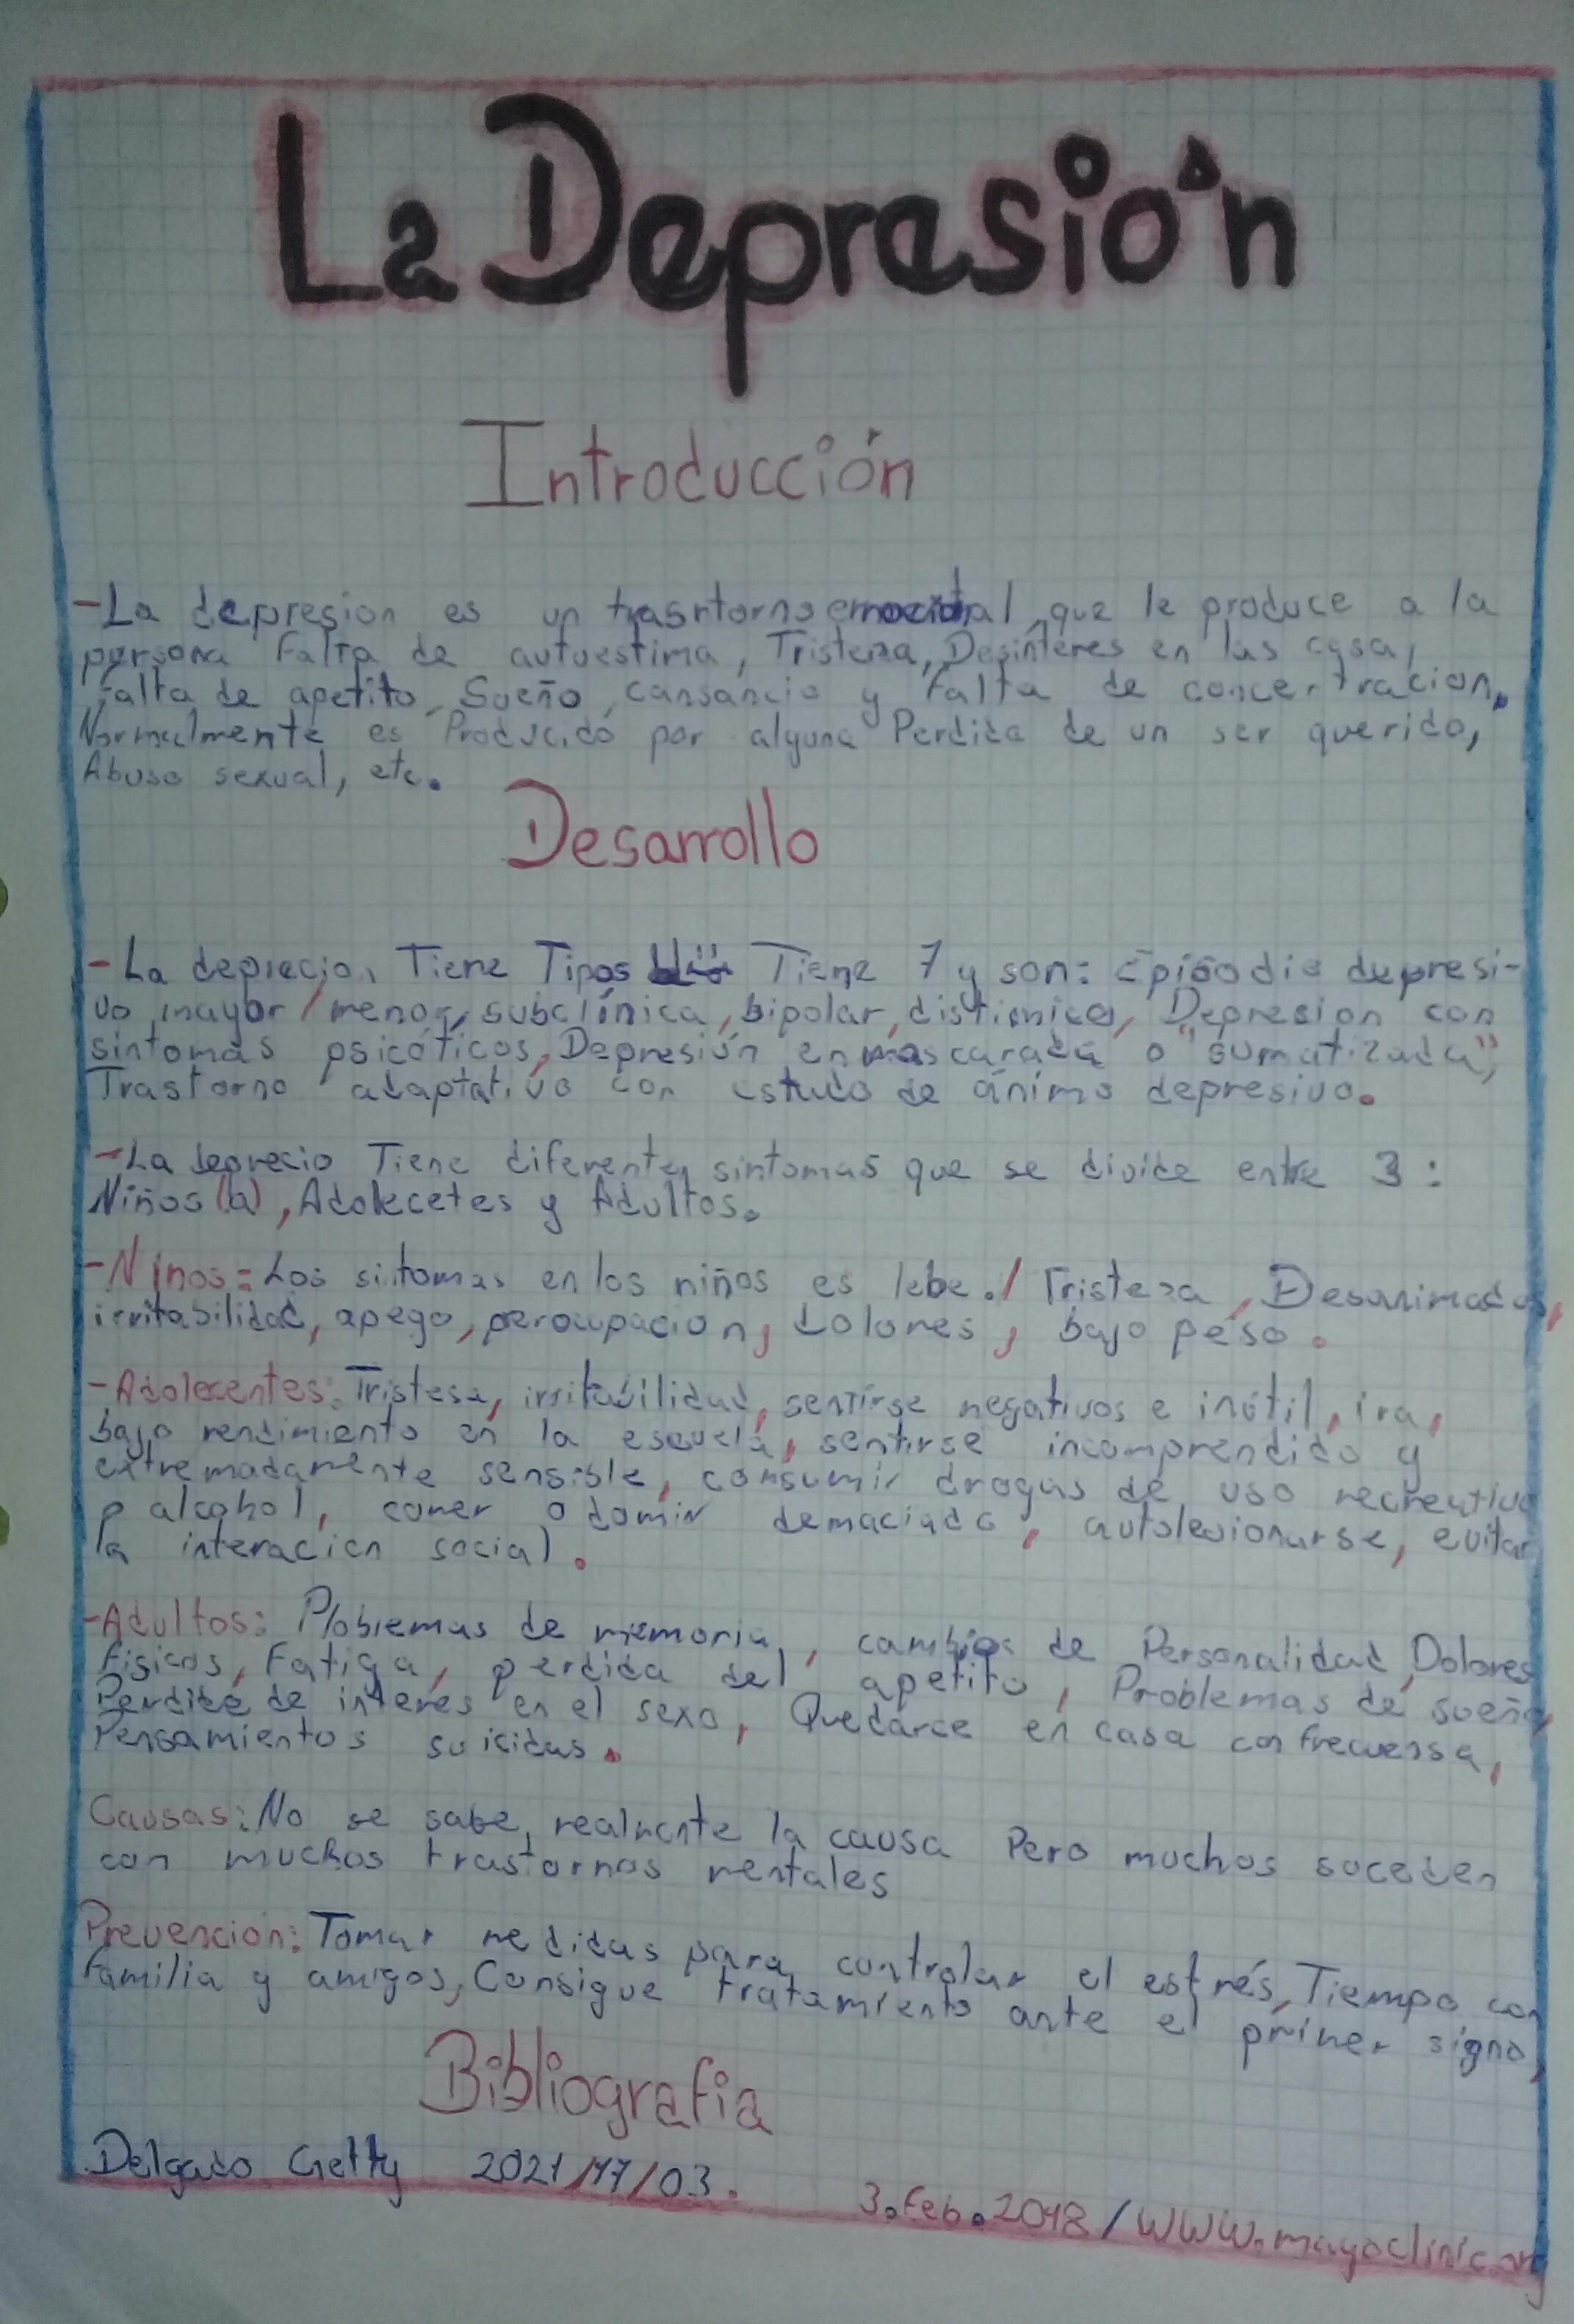 La Depresión
Introducción
-La depresion es un trasntorno emocional, que le produce a la
persona Falta de autoestima, Tristeza, Desinteres en las cosa,
Falta de apetito, Sueño, cansancio y Falta de concentracion.
Normalmente es Producido por alguna Perdida de un ser querido,
Abuso sexual, etc.
Desarrollo
-La deprecion Tiene Tipos Tiene 7 y son: Episodio depresi-
vo mayor/menor, subclínica, bipolar, distimico, Depresion con
sintomas psicóticos, Depresión enmascarada o "sumatizada",
Trastorno adaptativo con estado de ánimo depresivo.
-La deprecio Tiene diferentes sintomas que se divide entre 3:
Niños(a), Adolecetes y Adultos.
-Ninos= Los sintomas en los niños es lebe./ Tristeza, Desanimados,
irritabilidad, apego, perocupacion, Dolores, bajo peso.
-Adolecentes: Tristesa, irritabilidad, sentirse negativos e inútil, ira,
bajo rendimiento en la escuela, sentirse incomprendido y
extremadamente sensible, consumir drogas de uso recreativo
o alcohol, comer o domir demaciado, autolesionarse, evitar
la interacion social.
-Adultos: Ploblemas de memoria, cambios de Personalidad, Dolores
Fisicos, Fatiga, perdida del apetito, Problemas de sueño,
Perdida de interés en el sexo, Quedarce en casa con frecuensa,
Pensamientos suicidas.
Causas: No se sabe, realmente la causa Pero muchos suceden
con muchos trastornos mentales
Prevencion: Tomar medidas para controlar el estrés, Tiempo con
Familia y amigos, Consigue tratamiento ante el primer signo,
Bibliografia
Delgado Getty 2021/17/03.
3.Feb.2018/WWW.mayoclinic.org